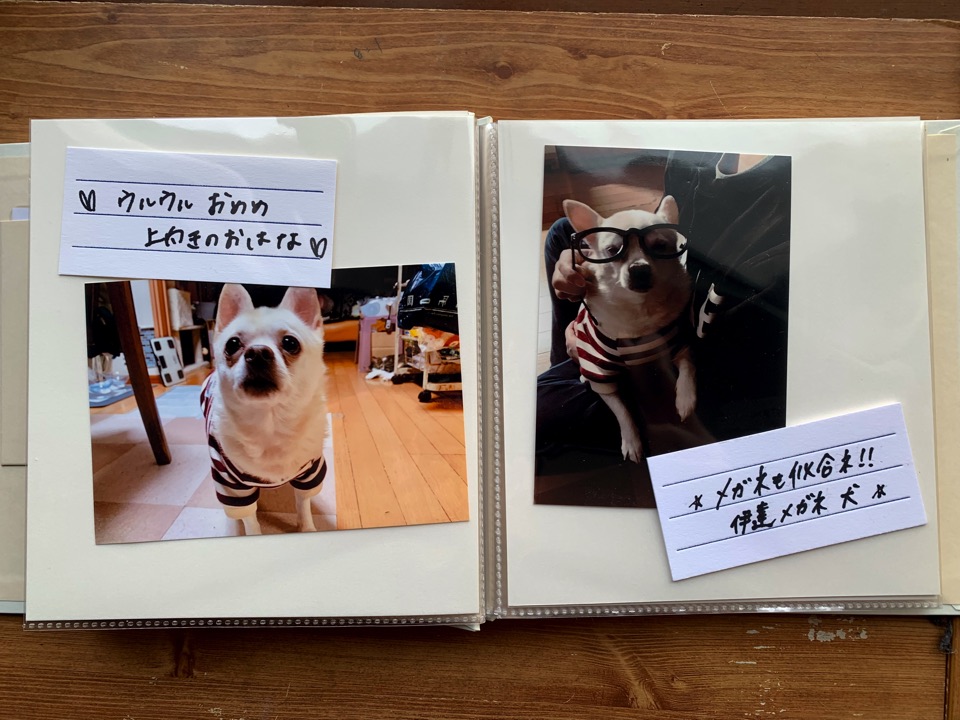 ♡ ウルウル おめめ
上向きのおはな♡
* メガネも似合ネ!!
伊達メガネ 犬 *